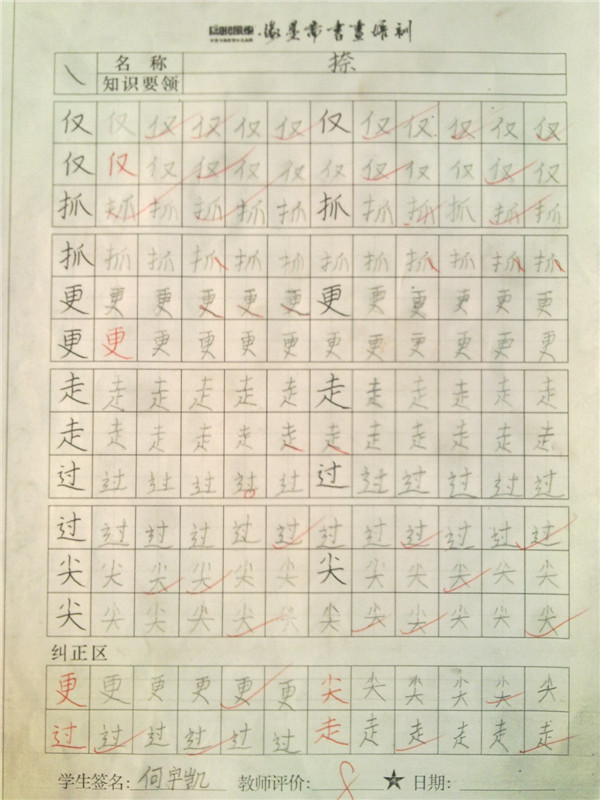 書畫培訓
㇏ 名称 捺
知识要领
仅 仅 仅 仅 仅 仅 仅 仅 仅 仅 仅 仅
仅 仅 仅 仅 仅 仅 仅 仅 仅 仅 仅 仅
抓 抓 抓 抓 抓 抓 抓 抓 抓 抓 抓 抓
抓 抓 抓 抓 抓 抓 抓 抓 抓 抓 抓 抓
更 更 更 更 更 更 更 更 更 更 更 更
更 更 更 更 更 更 更 更 更 更 更 更
走 走 走 走 走 走 走 走 走 走 走 走
走 走 走 走 走 走 走 走 走 走 走 走
过 过 过 过 过 过 过 过 过 过 过 过
过 过 过 过 过 过 过 过 过 过 过 过
尖 尖 尖 尖 尖 尖 尖 尖 尖 尖 尖 尖
尖 尖 尖 尖 尖 尖 尖 尖 尖 尖 尖 尖
纠正区
更 更 更 更 更 更 尖 尖 尖 尖 尖 尖
过 过 过 过 过 过 走 走 走 走 走 走
学生签名: 何宇凯 教师评价: 8 ★ 日期: